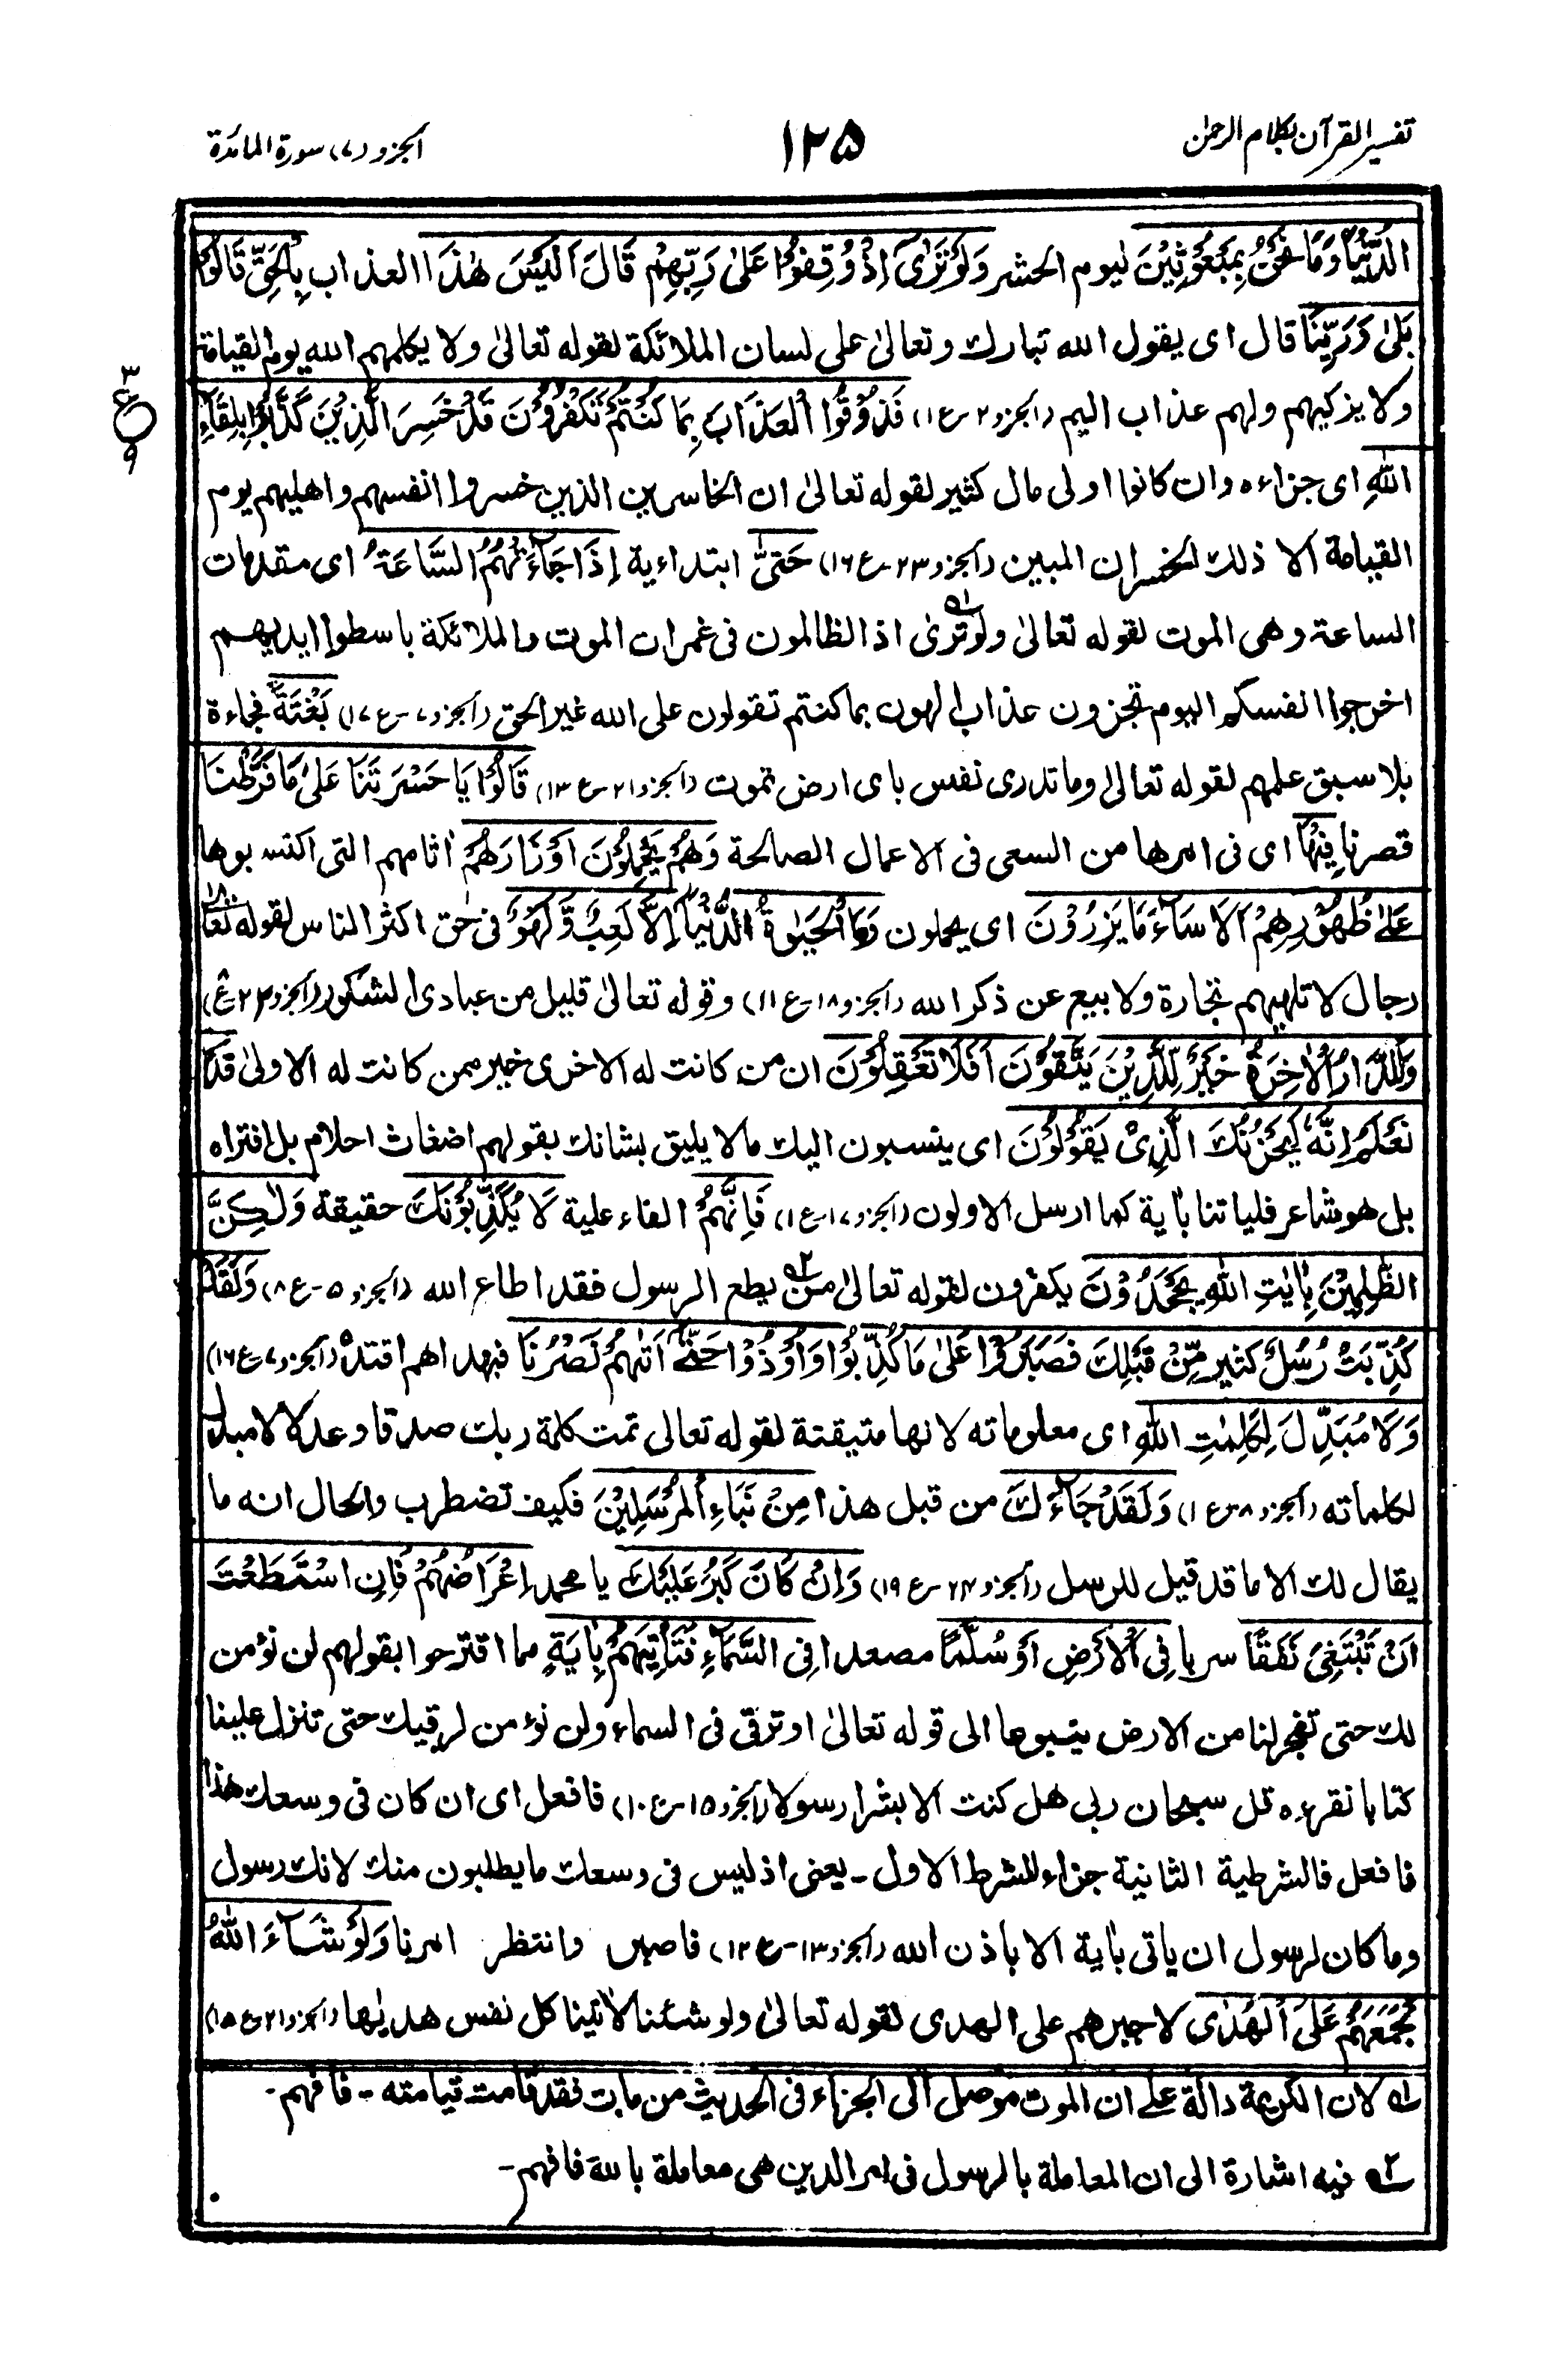 تفسير القرآن بكلام الرحمٰن
١٢٥
الجزو (٧) سورة المائدة
الدُّنْيَا وَمَا نَحْنُ بِمَبْعُوْثِيْنَ ليوم الحشر وَلَوْ تَرٰىٓ اِذْ وُقِفُوْا عَلٰى رَبِّهِمْ قَالَ اَلَيْسَ هٰذَا العذاب بِالْحَقِّ قَالُوْا
بَلٰى وَرَبِّنَا قال اى يقول الله تبارك وتعالىٰ على لسان الملائكة لقوله تعالىٰ ولا يكلمهم الله يوم القيامة
ولا يزكيهم ولهم عذاب اليم (الجزو ٢-ع١) فَذُوْقُوا الْعَذَابَ بِمَا كُنْتُمْ تَكْفُرُوْنَ قَدْ خَسِرَ الَّذِيْنَ كَذَّبُوْا بِلِقَآءِ
٣
ع
٩
اللهِ اى جزاءه وان كانوا اولى مال كثير لقوله تعالىٰ ان الخاسرين الذين خسروا انفسهم واهليهم يوم
القيامة الا ذلك الخسران المبين (الجزو ٢٣-ع١٦) حَتّٰى ابتداءية اِذَا جَآءَتْهُمُ السَّاعَةُ اى مقدمات
الساعة وهى الموت لقوله تعالىٰ ولو ترىٰ ١ اذ الظالمون فى غمرات الموت والملائكة باسطوا ايديهم
اخرجوا انفسكم اليوم تجزون عذاب الهون بما كنتم تقولون على الله غير الحق (الجزو ٧-ع١٧) بَغْتَةً فجاءة
بلا سبق علمهم لقوله تعالىٰ وما تدرى نفس باى ارض تموت (الجزو ٢١-ع١٣) قَالُوْا يَا حَسْرَتَنَا عَلٰى مَا فَرَّطْنَا
قصرنا فِيْهَا اى فى امرها من السعى فى الاعمال الصالحة وَهُمْ يَحْمِلُوْنَ اَوْزَارَهُمْ اثامهم التى اكتسبوها
عَلٰى ظُهُوْرِهِمْ اَلَا سَآءَ مَا يَزِرُوْنَ اى يحملون وَمَا الْحَيٰوةُ الدُّنْيَآ اِلَّا لَعِبٌ وَّلَهْوٌ فى حق اكثر الناس لقوله تعالىٰ
رجال لا تلهيهم تجارة ولا بيع عن ذكر الله (الجزو ١٨-ع١١) وقوله تعالىٰ قليل من عبادى الشكور (الجزو ٢٢-ع٨)
وَلَلدَّارُ الْاٰخِرَةُ خَيْرٌ لِّلَّذِيْنَ يَتَّقُوْنَ اَفَلَا تَعْقِلُوْنَ ان من كانت له الاخرى خير ممن كانت له الاولىٰ قَدْ
نَعْلَمُ اِنَّهٗ لَيَحْزُنُكَ الَّذِىْ يَقُوْلُوْنَ اى ينسبون اليك ما لا يليق بشانك بقولهم اضغاث احلام بل افتراه
بل هو شاعر فلياتنا باٰية كما ارسل الاولون (الجزو ١٧-ع١) فَاِنَّهُمْ الفاء علية لَا يُكَذِّبُوْنَكَ حقيقة وَلٰكِنَّ
الظّٰلِمِيْنَ بِاٰيٰتِ اللهِ يَجْحَدُوْنَ يكفرون لقوله تعالىٰ من ٢ يطع الرسول فقد اطاع الله (الجزو ٥-ع٨) وَلَقَدْ
كُذِّبَتْ رُسُلٌ كثير مِّنْ قَبْلِكَ فَصَبَرُوْا عَلٰى مَا كُذِّبُوْا وَاُوْذُوْا حَتّٰىٓ اَتٰهُمْ نَصْرُنَا فبهداهم اقتدهْ (الجزو ٧-ع١٦)
وَلَا مُبَدِّلَ لِكَلِمٰتِ اللهِ اى معلوماته لانها متيقنة لقوله تعالى تمت كلمة ربك صدقا وعدلا لا مبدل
لكلماته (الجزو ٨-ع١) وَلَقَدْ جَآءَكَ من قبل هذا مِنْ نَّبَاِ الْمُرْسَلِيْنَ فكيف تضطرب والحال انه ما
يقال لك الا ما قد قيل للرسل (الجزو ٢٤-ع١٩) وَاِنْ كَانَ كَبُرَ عَلَيْكَ يا محمد اِعْرَاضُهُمْ فَاِنِ اسْتَطَعْتَ
اَنْ تَبْتَغِىَ نَفَقًا سربا فِى الْاَرْضِ اَوْ سُلَّمًا مصعدا فِى السَّمَآءِ فَتَاْتِيَهُمْ بِاٰيَةٍ مما اقترحوا بقولهم لن نؤمن
لك حتى تفجر لنا من الارض ينبوعا الى قوله تعالىٰ او ترقى فى السماء ولن نؤمن لرقيك حتى تنزل علينا
كتابا نقرءه قل سبحان ربى هل كنت الا بشرا رسولا (الجزو ١٥-ع١٠) فافعل اى ان كان فى وسعك هذا
فافعل فالشرطية الثانية جزاء للشرط الاول - يعنى اذ ليس فى وسعك ما يطلبون منك لانك رسول
وما كان لرسول ان ياتى باٰية الا باذن الله (الجزو ١٣-ع١٢) فاصبر وانتظر امرنا وَلَوْ شَآءَ اللهُ
لَجَمَعَهُمْ عَلَى الْهُدٰى لاجبرهم على الهدى لقوله تعالىٰ ولو شئنا لاٰتينا كل نفس هدٰيها (الجزو ٢١-ع١٥)
١ لان الكريمة دالة على ان الموت موصل الى الجزاء فى الحديث من مات فقد قامت قيامته - فافهم -
٢ فيه اشارة الى ان المعاملة بالرسول فى امر الدين هى معاملة بالله فافهم -